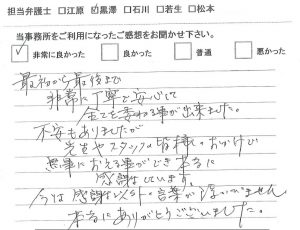 担当弁護士 □江原 ☑黒澤 □石川 □若生 □松本
当事務所をご利用になったご感想をお聞かせ下さい。
☑ 非常に良かった □ 良かった □ 普通 □ 悪かった
最初から最後まで
非常に丁寧で安心して
全てを委ねる事が出来ました。
不安もありましたが
先生やスタッフの皆様のおかげで
無事におえる事ができ本当に
感謝しています。
今は感謝以外の言葉が浮かびません
本当にありがとうございました。